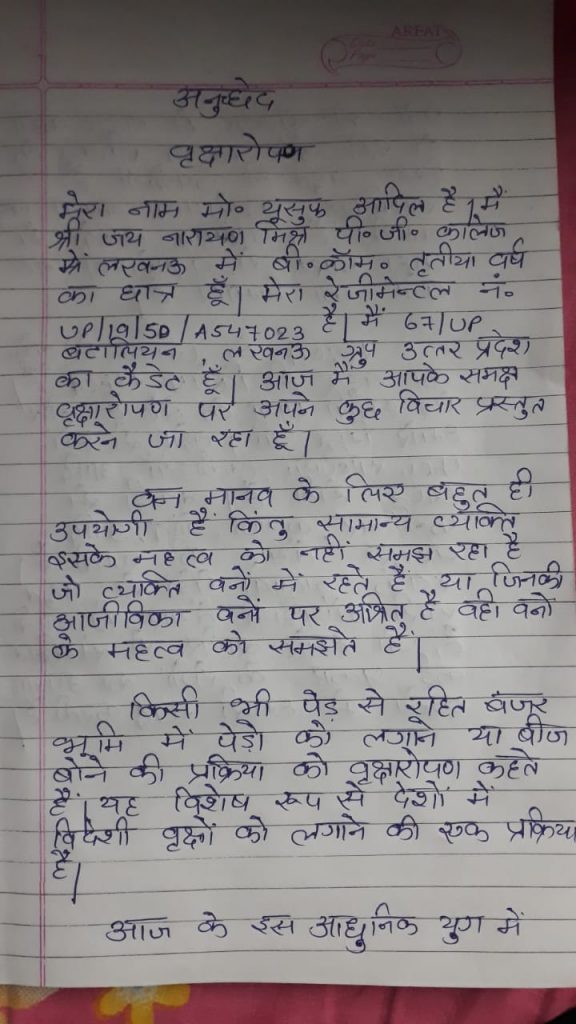 ARFAT
अनुच्छेद
वृक्षारोपण
मेरा नाम मो॰ यूसुफ आदिल है। मैं
श्री जय नारायण मिश्र पी॰जी॰ कालेज
में लखनऊ में बी॰कॉम॰ तृतीया वर्ष
का छात्र हूँ। मेरा रेजीमेन्टल नं॰
UP/19/SD/A547023 है। मैं 67/UP
बटालियन, लखनऊ ग्रुप उत्तर प्रदेश
का कैडेट हूँ। आज मैं आपके समक्ष
वृक्षारोपण पर अपने कुछ विचार प्रस्तुत
करने जा रहा हूँ।
वन मानव के लिए बहुत ही
उपयोगी हैं किंतु सामान्य व्यक्ति
इसके महत्व को नहीं समझ रहा है
जो व्यक्ति वनों में रहते हैं या जिनकी
आजीविका वनों पर अश्रित है वही वनो
के महत्व को समझते हैं।
किसी भी पेड़ से रहित बंजर
भूमि में पेड़ो को लगाने या बीज
बोने की प्रक्रिया को वृक्षारोपण कहते
हैं। यह विशेष रूप से देशों में
विदेशी वृक्षों को लगाने की एक प्रक्रिया
है।
आज के इस आधुनिक युग में